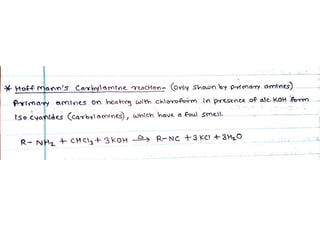 * Hoffmann's Carbylamine reaction- (Only shown by primary amines)
Primary amines on heating with chloroform in presence of alc. KOH form
Isocyanides (Carbylamines), which have a foul smell.
R- NH₂ + CHCl₃ + 3KOH Δ→ R-NC + 3KCl + 3H₂O